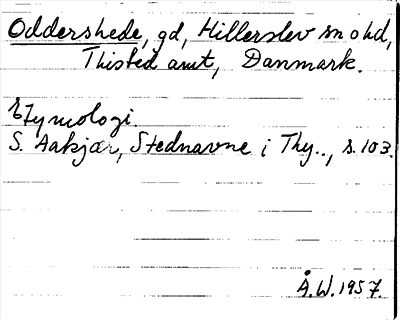 Oddershede, gd, Hillerslev sn o hd,
Thisted amt, Danmark.
Etymologi.
S. Aakjær, Stednavne i Thy.., s. 103.
Å.W. 1957.